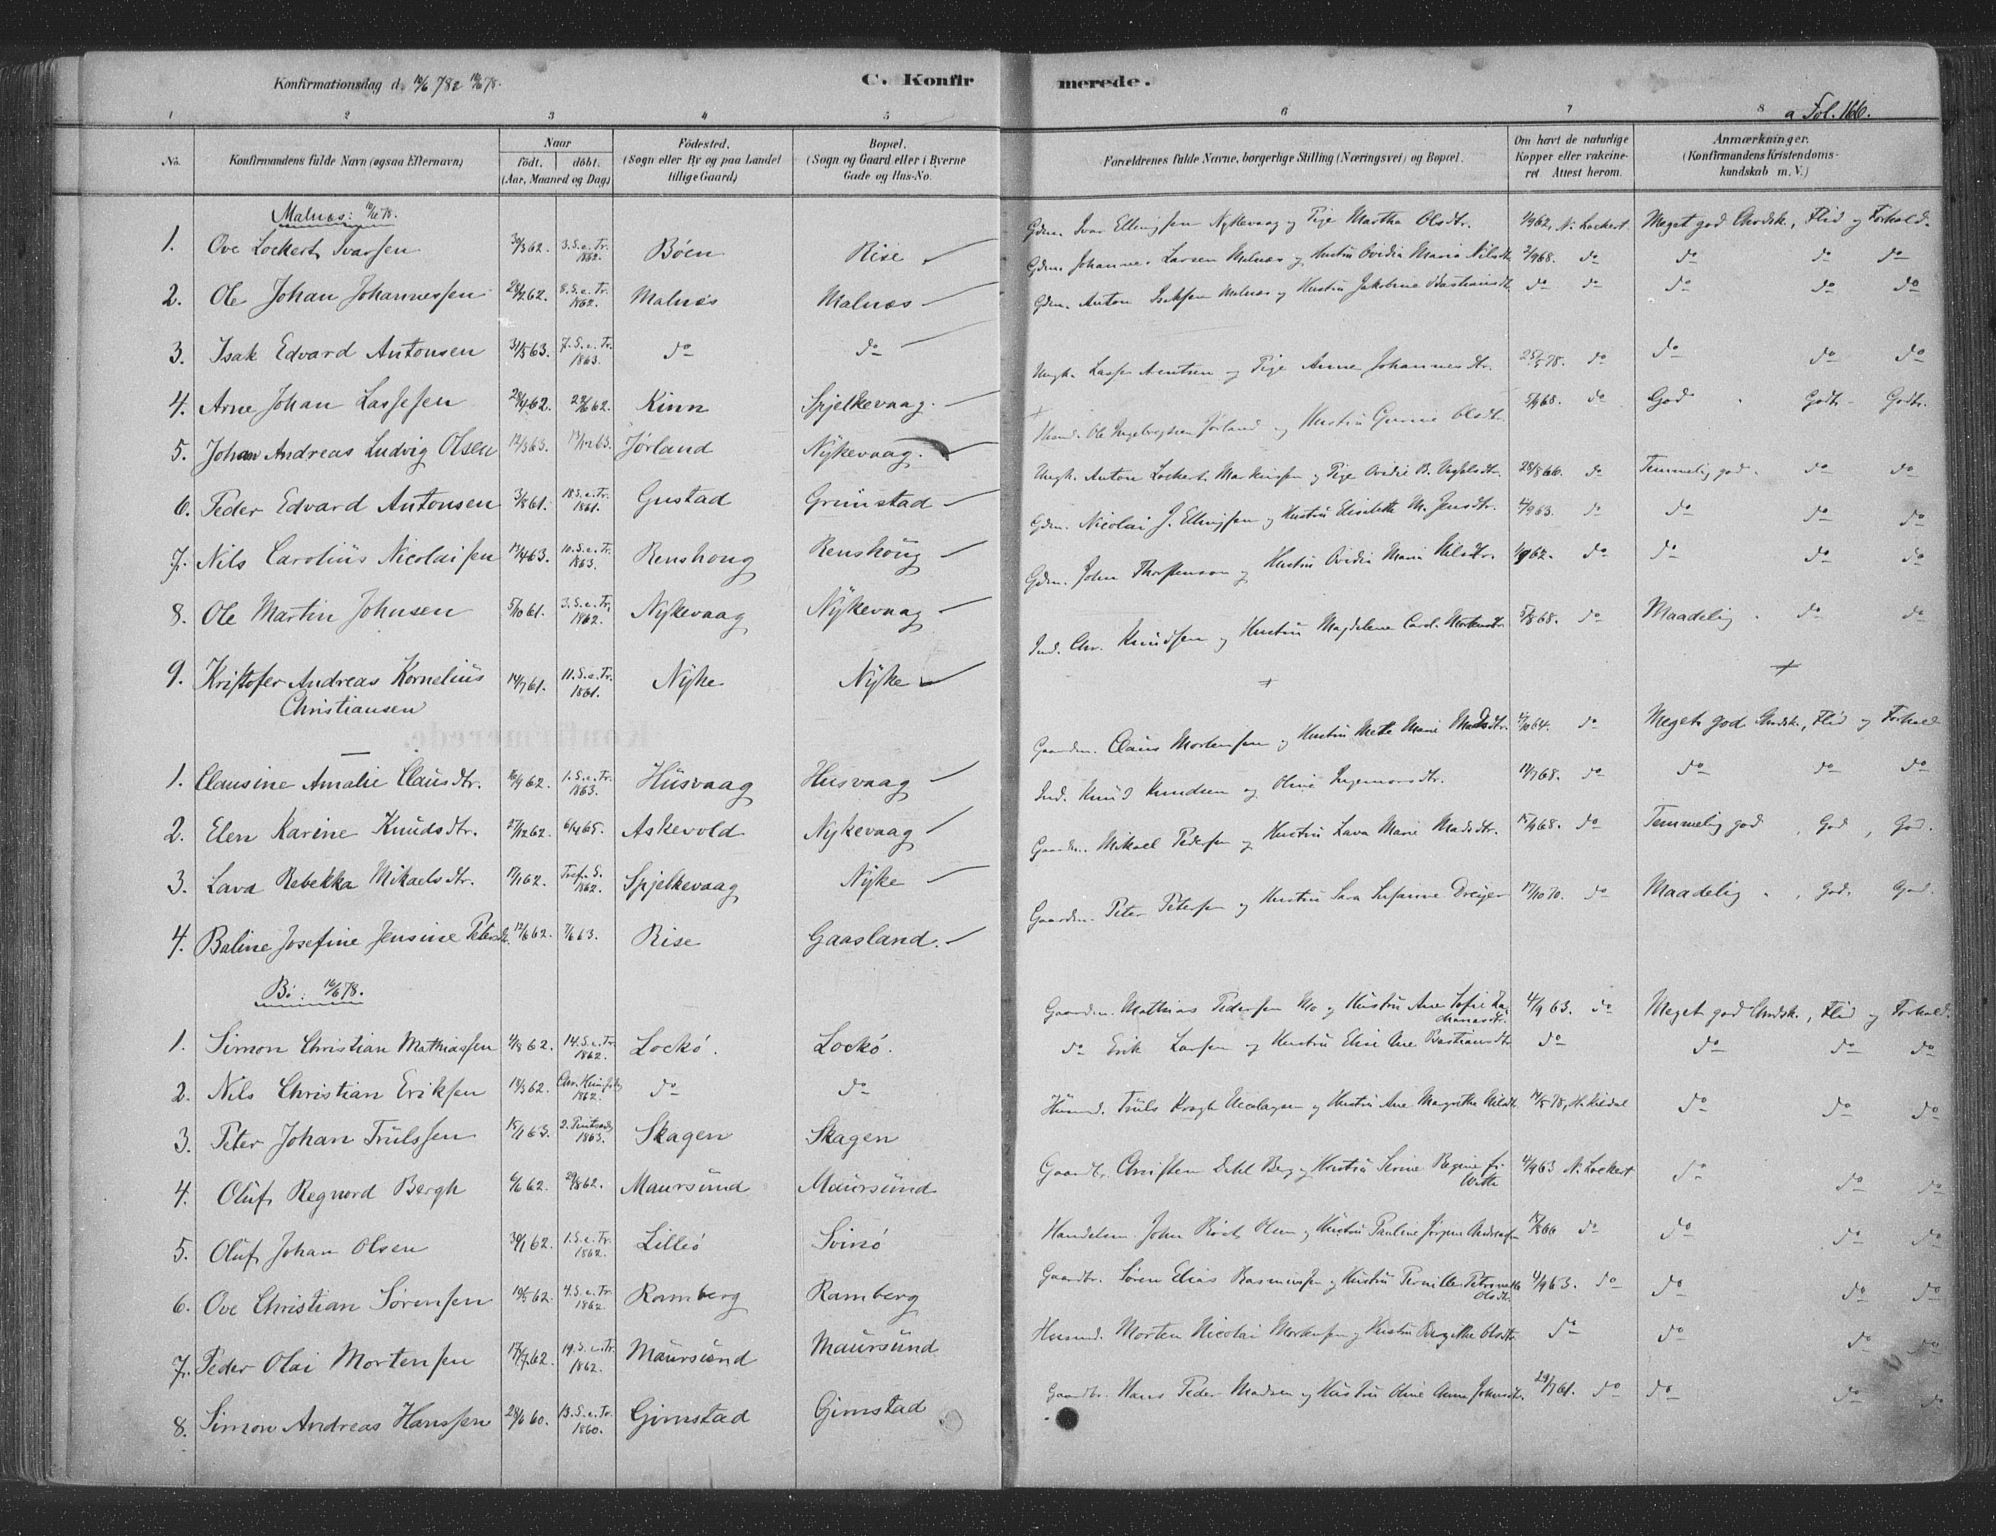 Konfirmationsdag d. 16/6 78
C. Konfirmerede.
a Fol. 166.
1 2 3 4 5 6 7 8
No. Konfirmandens fulde Navn (ogsaa Efternavn) Naar født. døbt. (Aar, Maaned og Dag) Fødested. (Sogn eller By og paa Landet tillige Gaard) Bopæl. (Sogn og Gaard eller i Byerne Gade og Hus-No. Forældrenes fulde Navne, borgerlige Stilling (Næringsvei) og Bopæl. Om havt de naturlige Kopper eller vakcineret Attest herom. Anmærkninger. (Konfirmandens Kristendomskundskab m. V.)
Malnæs: 16/6 78.
1. Ove Lockert Ivarsen 3. S. e. Tr. 1862. Böen Rise Gdm. Ivar Ellingsen Nykevaag og Pige Martha Olsdtr. 1/9 62, N. Lockert. Meget god Chrdsk., Flid og Forhold.
2. Ole Johan Johannessen 8. S. e. Tr. 1862. Malnæs Malnæs Gdm. Johannes Larsen Malnæs og Hustru Ovidia Maria Nilsdtr. 2/9 68. do do do do
3. Isak Edvard Antonsen 31/5 63. 7. S. e. Tr. 1863. do do Gdm. Anton Isaksen Malnæs og Hustru Jakobine Bastiansdtr. do do do do do
4. Arne Johan Lassesen 28/4 62. 22/6 62. Kinn Spjelkevaag. Ungk. Lasse Arntsen og Pige Anne Johannesdtr. 25/5 78. do do do do
5. Johan Andreas Ludvig Olsen 12/3 63. Jørland Nykevaag. Ole Ingebrigtsen Jørland og Hustru Gurine Olsdtr. 5/9 68. do God Godt Godt.
6. Peder Edvard Antonsen 3/8 61. 18. S. e. Tr. 1861. Gustad Grimstad Ungk. Anton Lockert Markussen og Pige Ovidie B. 28/8 66 do Temmelig god. do do
7. Nils Carolius Nicolaisen 19/4 63. 10. S. e. Tr. 1863. Renshoug Renshoug Gdm. Nicolai J. Ellingsen og Hustru Elisabeth M. Jensdtr. 4/9 63. do do do do
8. Ole Martin Johnsen 5/10 61. 3. S. e. Tr. 1862. Nykevaag Nykevaag Gdm. John Thorstensen og Hustru Ovidia Maria Nilsdtr. 1/9 62. do do do do
9. Kristofer Andreas Kornelius Christiansen 14/7 61. 11. S. e. Tr. 1861. Nyke Nyke Ind. Chr. Knudsen og Hustru Magdelene Carol. 5/8 68. do Maadelig. do do
1. Clausine Amalie Clausdtr. 16/9 62. 1. S. e. Tr. 1863. Husvaag Husvaag Gaardm. Claus Mortensen og Hustru Mette Marie Madsdtr. 4/10 64. do Meget god Chrdsk., Flid og Forhold
2. Elen Karine Knudsdtr. 27/12 62. 6/4 65. Askevold Nykevaag Ind. Knud Knudsen og Oline Ingemorsdtr. 12/7 68. do do do do
3. Lava Rebekka Mikaelsdtr. 19/1 62. 1862. Spjelkevaag Nyke Gaardm. Mikael Pedersen og Hustru Lava Marie Madsdtr. 15/9 68. do Temmelig god, God, God.
4. Baline Josefine Jensine Petersdtr. 12/6 62. 7/6 63. Rise Gaasland. Gaardm. Peter Petersen og Hustru Sara Susanne Dreyer 17/10 70. do Maadelig, God. God.
Bö: 16/6 78.
1. Simon Christian Mathiassen 4/8 62. 14. S. e. Tr. 1862. Lockö. Lockö. Gaardm. Mathias Pedersen og Hustru Ane Sofie Zachariasdtr. 4/9 63. do Meget god Chrdsk., Flid og Forhold.
2. Nils Christian Eriksen 18/3 62. Chr. Himfd. 1862. do do do Erik Larsen og Hustru Elen Ane Bastiansdtr. do do do do
3. Peter Johan Trulssen 15/1 63. 2. Pintsed. 1863. Skagen Skagen Husmd. Truls Krogh Nicolaysen og Hustru Ane Margrethe Nilsdtr. 14/5 78, H. Kildal do do do
4. Oluf Regnord Bergh 6/6 62. 29/8 62. Maursund Maursund Gaardbr. Christen Dahl Berg og Hustru Serine Regine f. Witte 4/9 63 N. Lockert do do do
5. Oluf Johan Olsen 30/1 62. 1. S. e. Tr. 1862. Lilleö Svinö Handelsm. John Röst Olsen og Hustru Pauline Jørgine Andreasen do do do do
6. Ove Christian Sörensen 10/5 62. 4. S. e. Tr. 1862. Ramberg Ramberg Gaardbr. Sören Elias Rasmussen og Hustru Pernille Petronelle Olsdtr. 4/9 63. do do do do
7. Peder Olai Mortensen 17/7 62. 19. S. e. Tr. 1862. Maursund Maursund Husmd. Morten Nicolai Mortensen og Hustru Birgithe Olsdtr. do do do do
8. Simon Andreas Hanssen 28/6 60. 13. S. e. Tr. 1860. Gimstad Gimstad Gaardbr. Hans Peder Madsen og Hustru Oline Anna Johnsdtr. 29/7 61. do do do do